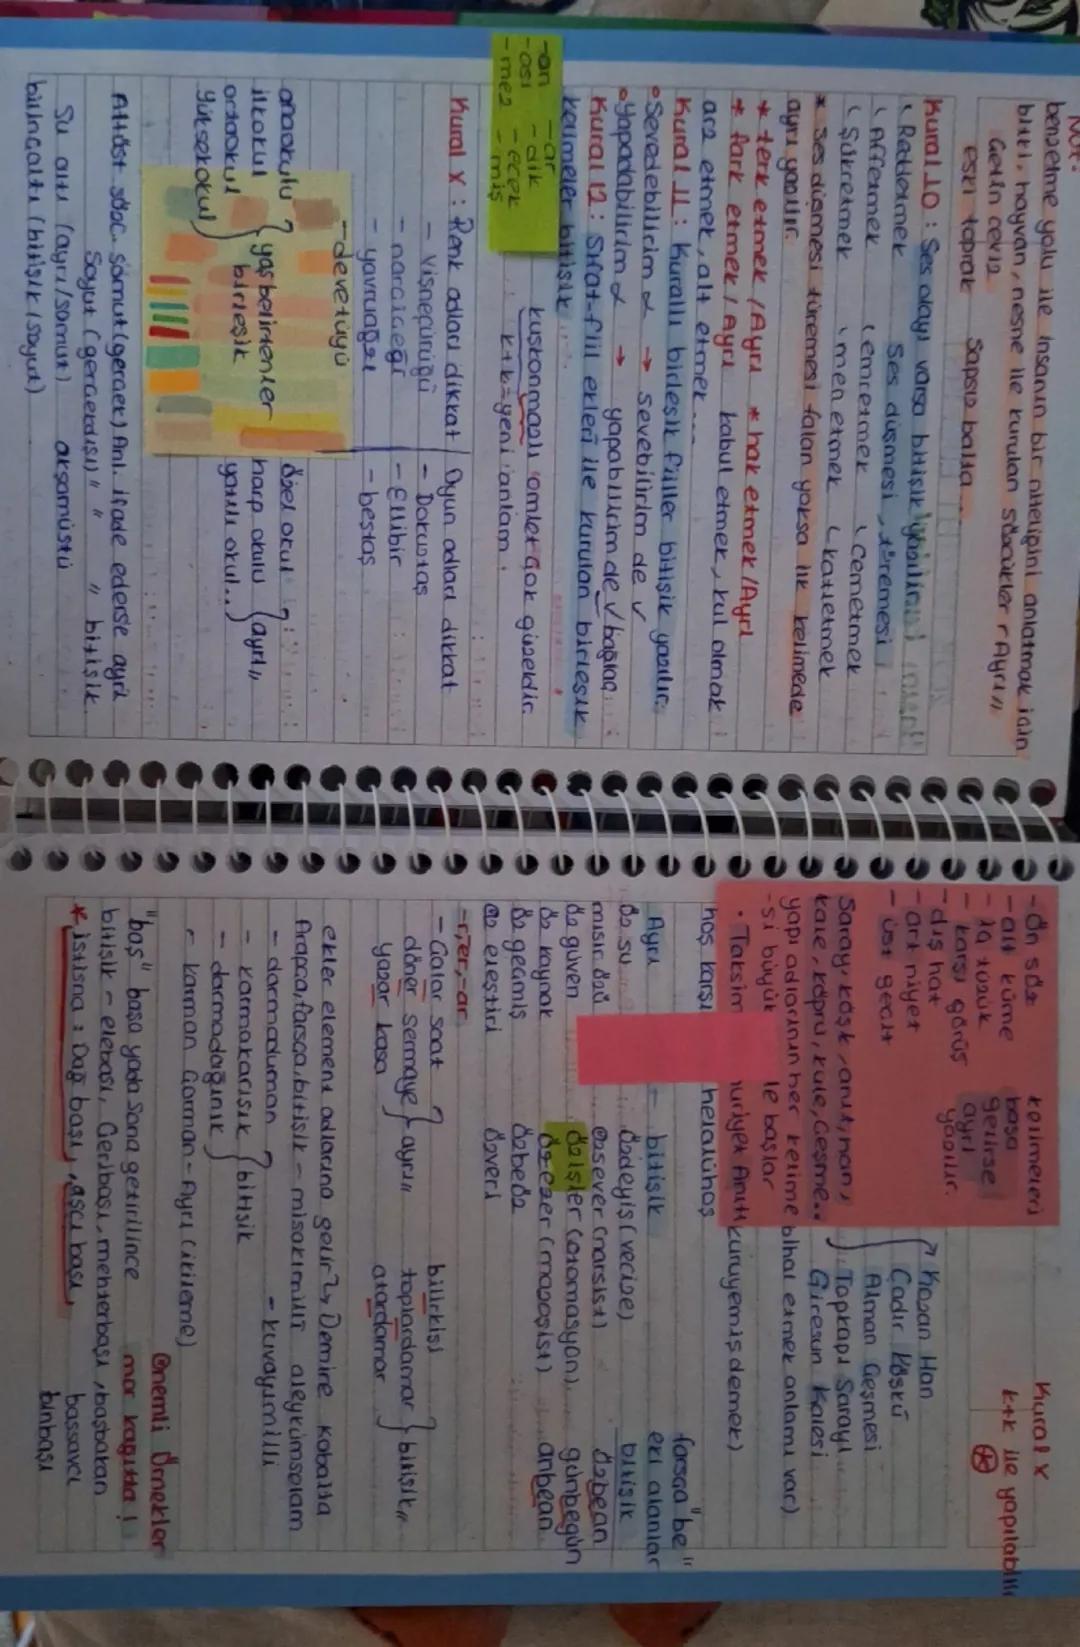 Not:
benzetme yolu ile insanın bir niteliğini anlatmak için
bitki, hayvan, nesne ile kurulan sözcükler Ayrı
Getin ceviz
eski toprak Sapsız balta...
Kural 10: Ses olayı varsa bitişik
Reddetmek Ses düşmesi, türemesi
Affetmek emretmek cemetmek
Şükretmek men etmek katletmek
* Ses düşmesi türemesi falan yoksa ilk kelimede
ayrı yazılır.
* terk etmek /Ayrı * hak etmek /Ayrı
* fark etmek / Ayrı kabul etmek, kul olmak
arz etmek, alt etmek...
Kural 11: Kurallı birleşik fiiller bitişik yazılır.
Sevedebilirim α → sevebilirim de √
Yapadabilirim α → yapabilirim de √ bağlaç
Kural 12: Sıfat-fiil ekleri ile kurulan birleşik
kelimeler bitişik
-an -ar
-ası -dik
-mez -ecek
-miş
kuşkonmazlı omlet çok güzeldir.
k+k=yeni anlam.
Kural X: Renk adları dikkat / Oyun adları dikkat
- Vişneçürüğü - Dokuztaş
- narçiçeği - Ellibir
- yavruağzı - beştaş
- devetüyü
anaokulu
ilkokul
ortaokul
yüksekokul
yaş belirtenler
birleşik
özel okul
harp okulu
yatılı okul..
ayrı
Alt/üst sözc. somut (gerçek) Anl. ifade ederse ayrı
Soyut (gerçekdışı) " " " bitişik.
Su altı (ayrı/somut) akşamüstü
bilinçaltı (bitişik / soyut)
- ön söz
- alt küme
- karşı görüş
- dış hat
- art niyet
- üst geçit
kelimeleri
başa
gelirse
ayrı
yazılır.
Kural X
k+k ile yapılabilir
Saray, köşk, anıt, han,
kale, köprü, kule, çeşme..
yapı adlarının her kelime
-si büyük le başlar
• Taksim
Anıtı
Kazan Han
Çadır Köşkü
Alman Çeşmesi
Topkapı Sarayı
Giresun Kalesi
bihal etmek anlamı var)
kuruyemiş demek)
hoş karşı helalühoş
Ayrı - bitişik
farsça "be"
eki alanlar
bitişik
öz su özdeyiş (vecize) özbean
mısır özü özsever (narsist) günbegün
öz güven özişler (otomasyon).. anbean
öz kaynak özezer (mazoşist)
öz geçmiş özbeöz
öz eleştiri özveri
-r, er, -ar
- Çalar saat
döner sermaye
yazar kasa
ayrı
bilirkişi
toplardamar
atardamar
bitişik
ekler element adlarına gelir Demire Kobalta
Arapça, farsça, bitişik - misakımillî aleykümselam
- darmaduman - kuvayımilli
- karmakarışık
- darmadağınık
bitişik
- karman çorman - Ayrı (ikileme)
Önemli Örnekler
mor kağıtta!
"baş" başa yada sona getirilince
bitişik - elebaşı, Çeribaşı, mehterbaşı, başbakan
* İstisna: Dağ başı, aşçı başı, başsavcı
binbaşı